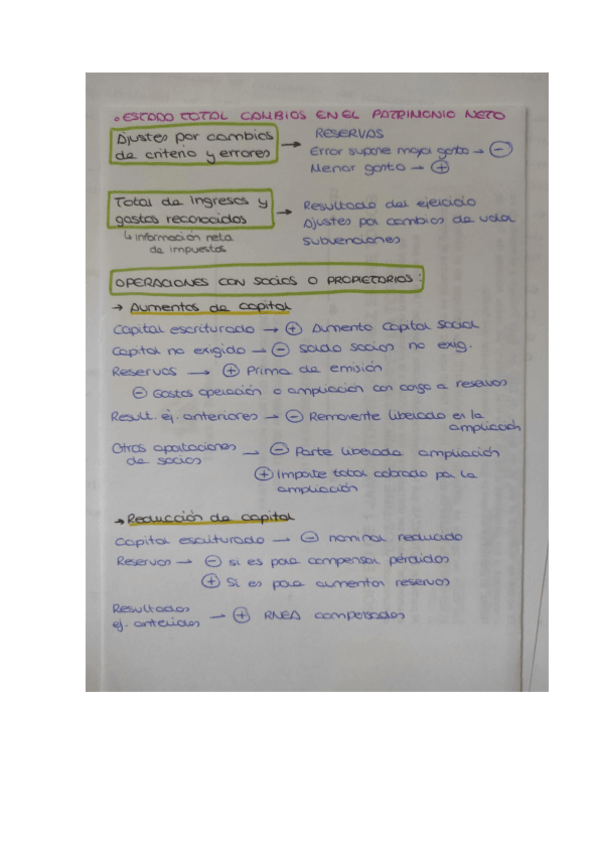 • ESTADO TOTAL CAMBIOS EN EL PATRIMONIO NETO
Ajustes por cambios de criterio y errores →
RESERVAS
Error supone mayor gasto → ⊖
Menor gasto → ⊕
Total de ingresos y gastos reconocidos →
↳ información neta de impuestos
Resultado del ejercicio
Ajustes por cambios de valor
Subvenciones
OPERACIONES CON SOCIOS O PROPIETARIOS:
→ Aumentos de capital
Capital escriturado → ⊕ Aumento capital social
Capital no exigido → ⊖ saldo socios no exig.
Reservas → ⊕ Prima de emisión
⊖ Gastos operación o ampliación con cargo a reservas
Result. ej. anteriores → ⊖ Remanente liberado en la
ampliación
Otras aportaciones de socios → ⊖ Parte liberada ampliación
⊕ Importe total cobrado por la
ampliación
→ Reducción de capital
Capital escriturado → ⊖ nominal reducido
Reservas → ⊖ si es para compensar pérdidas
⊕ Si es para aumentar reservas
Resultados ej. anteriores → ⊕ RNEA compensados